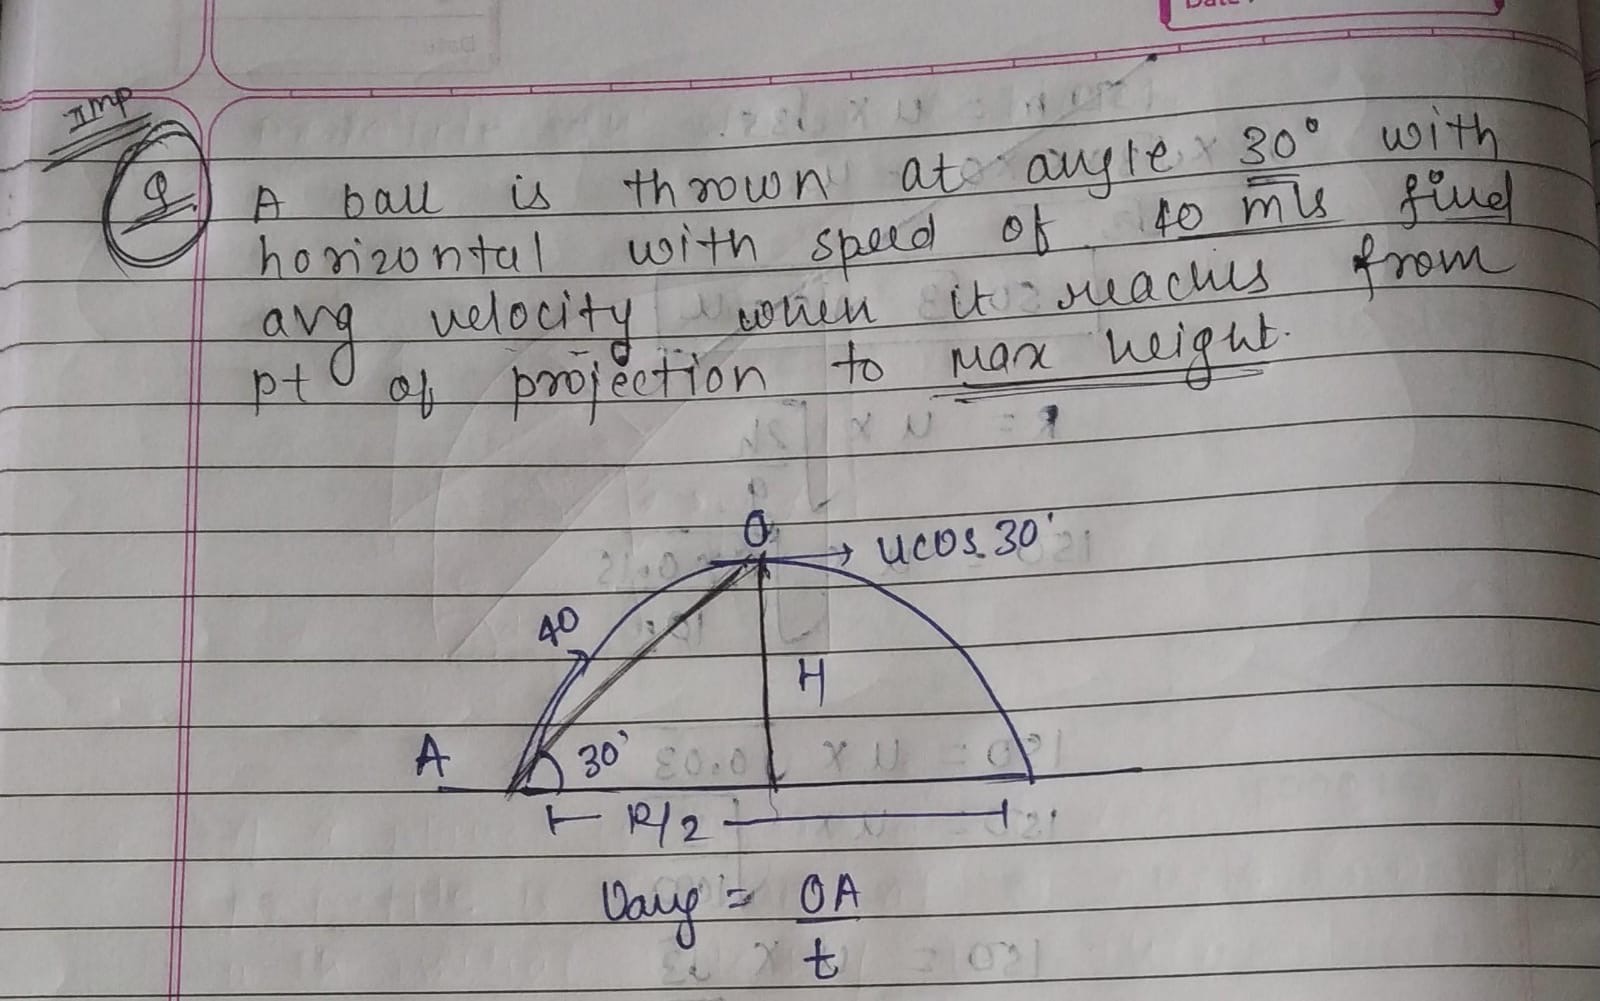 Date
Imp
Q
A ball is thrown at angle 30° with
horizontal with speed of 40 m/s find
avg velocity when it reaches from
pt of projection to max height.
O
→ u cos 30°
40
H
A
30°
R/2
Vavg = OA
t